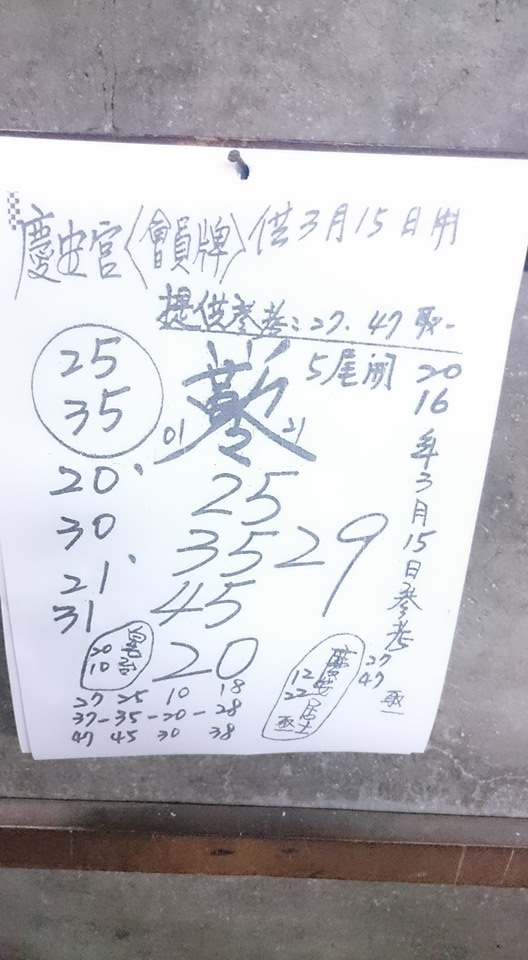 慶忠宮〈會員牌〉供3月15日用
提供參考:27.47 取一
5尾開
25
35
01
21
20
16
年3月15日參考
20
30
21
31
25
35
45
29
20
20
10
12
22
居士
27
47
27 25 10 18
37-35-20-28
47 45 30 38